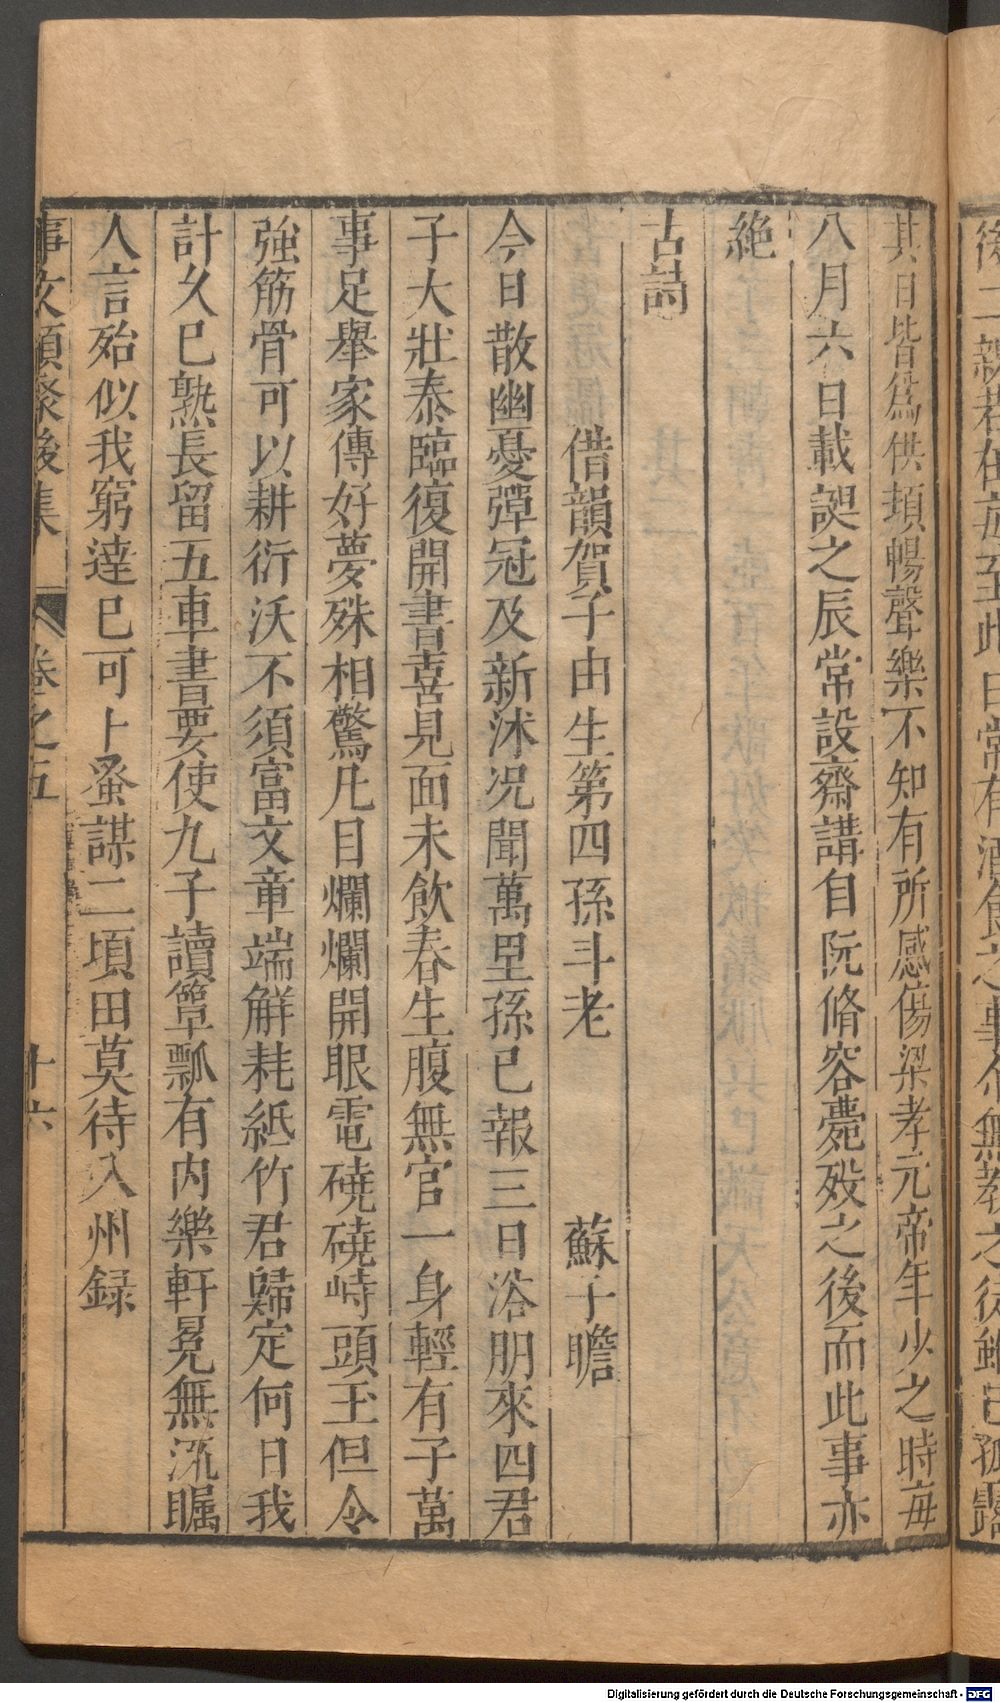 其日皆爲供頓暢聲樂不知有所感傷梁孝元帝年少之時每
八月六日載誕之辰常設齋講自阮脩容薨歿之後而此事亦
絶
古詩
借韻賀子由生第四孫斗老 蘇子瞻
今日散幽憂彈冠及新沐况聞萬里孫已報三日浴朋來四君
子大壯泰臨復開書喜見面未飲春生腹無官一身輕有子萬
事足舉家傳好夢殊相驚凡目爛爛開眼電磽磽峙頭玉但令
強筋骨可以耕衍沃不須富文章端解耗紙竹君歸定何日我
計久已熟長留五車書要使九子讀簞瓢有内樂軒冕無流矚
人言殆似我窮達已可卜蚤謀二頃田莫待入州録
事文類聚後集 卷之五 十六
Digitalisierung gefördert durch die Deutsche Forschungsgemeinschaft - DFG